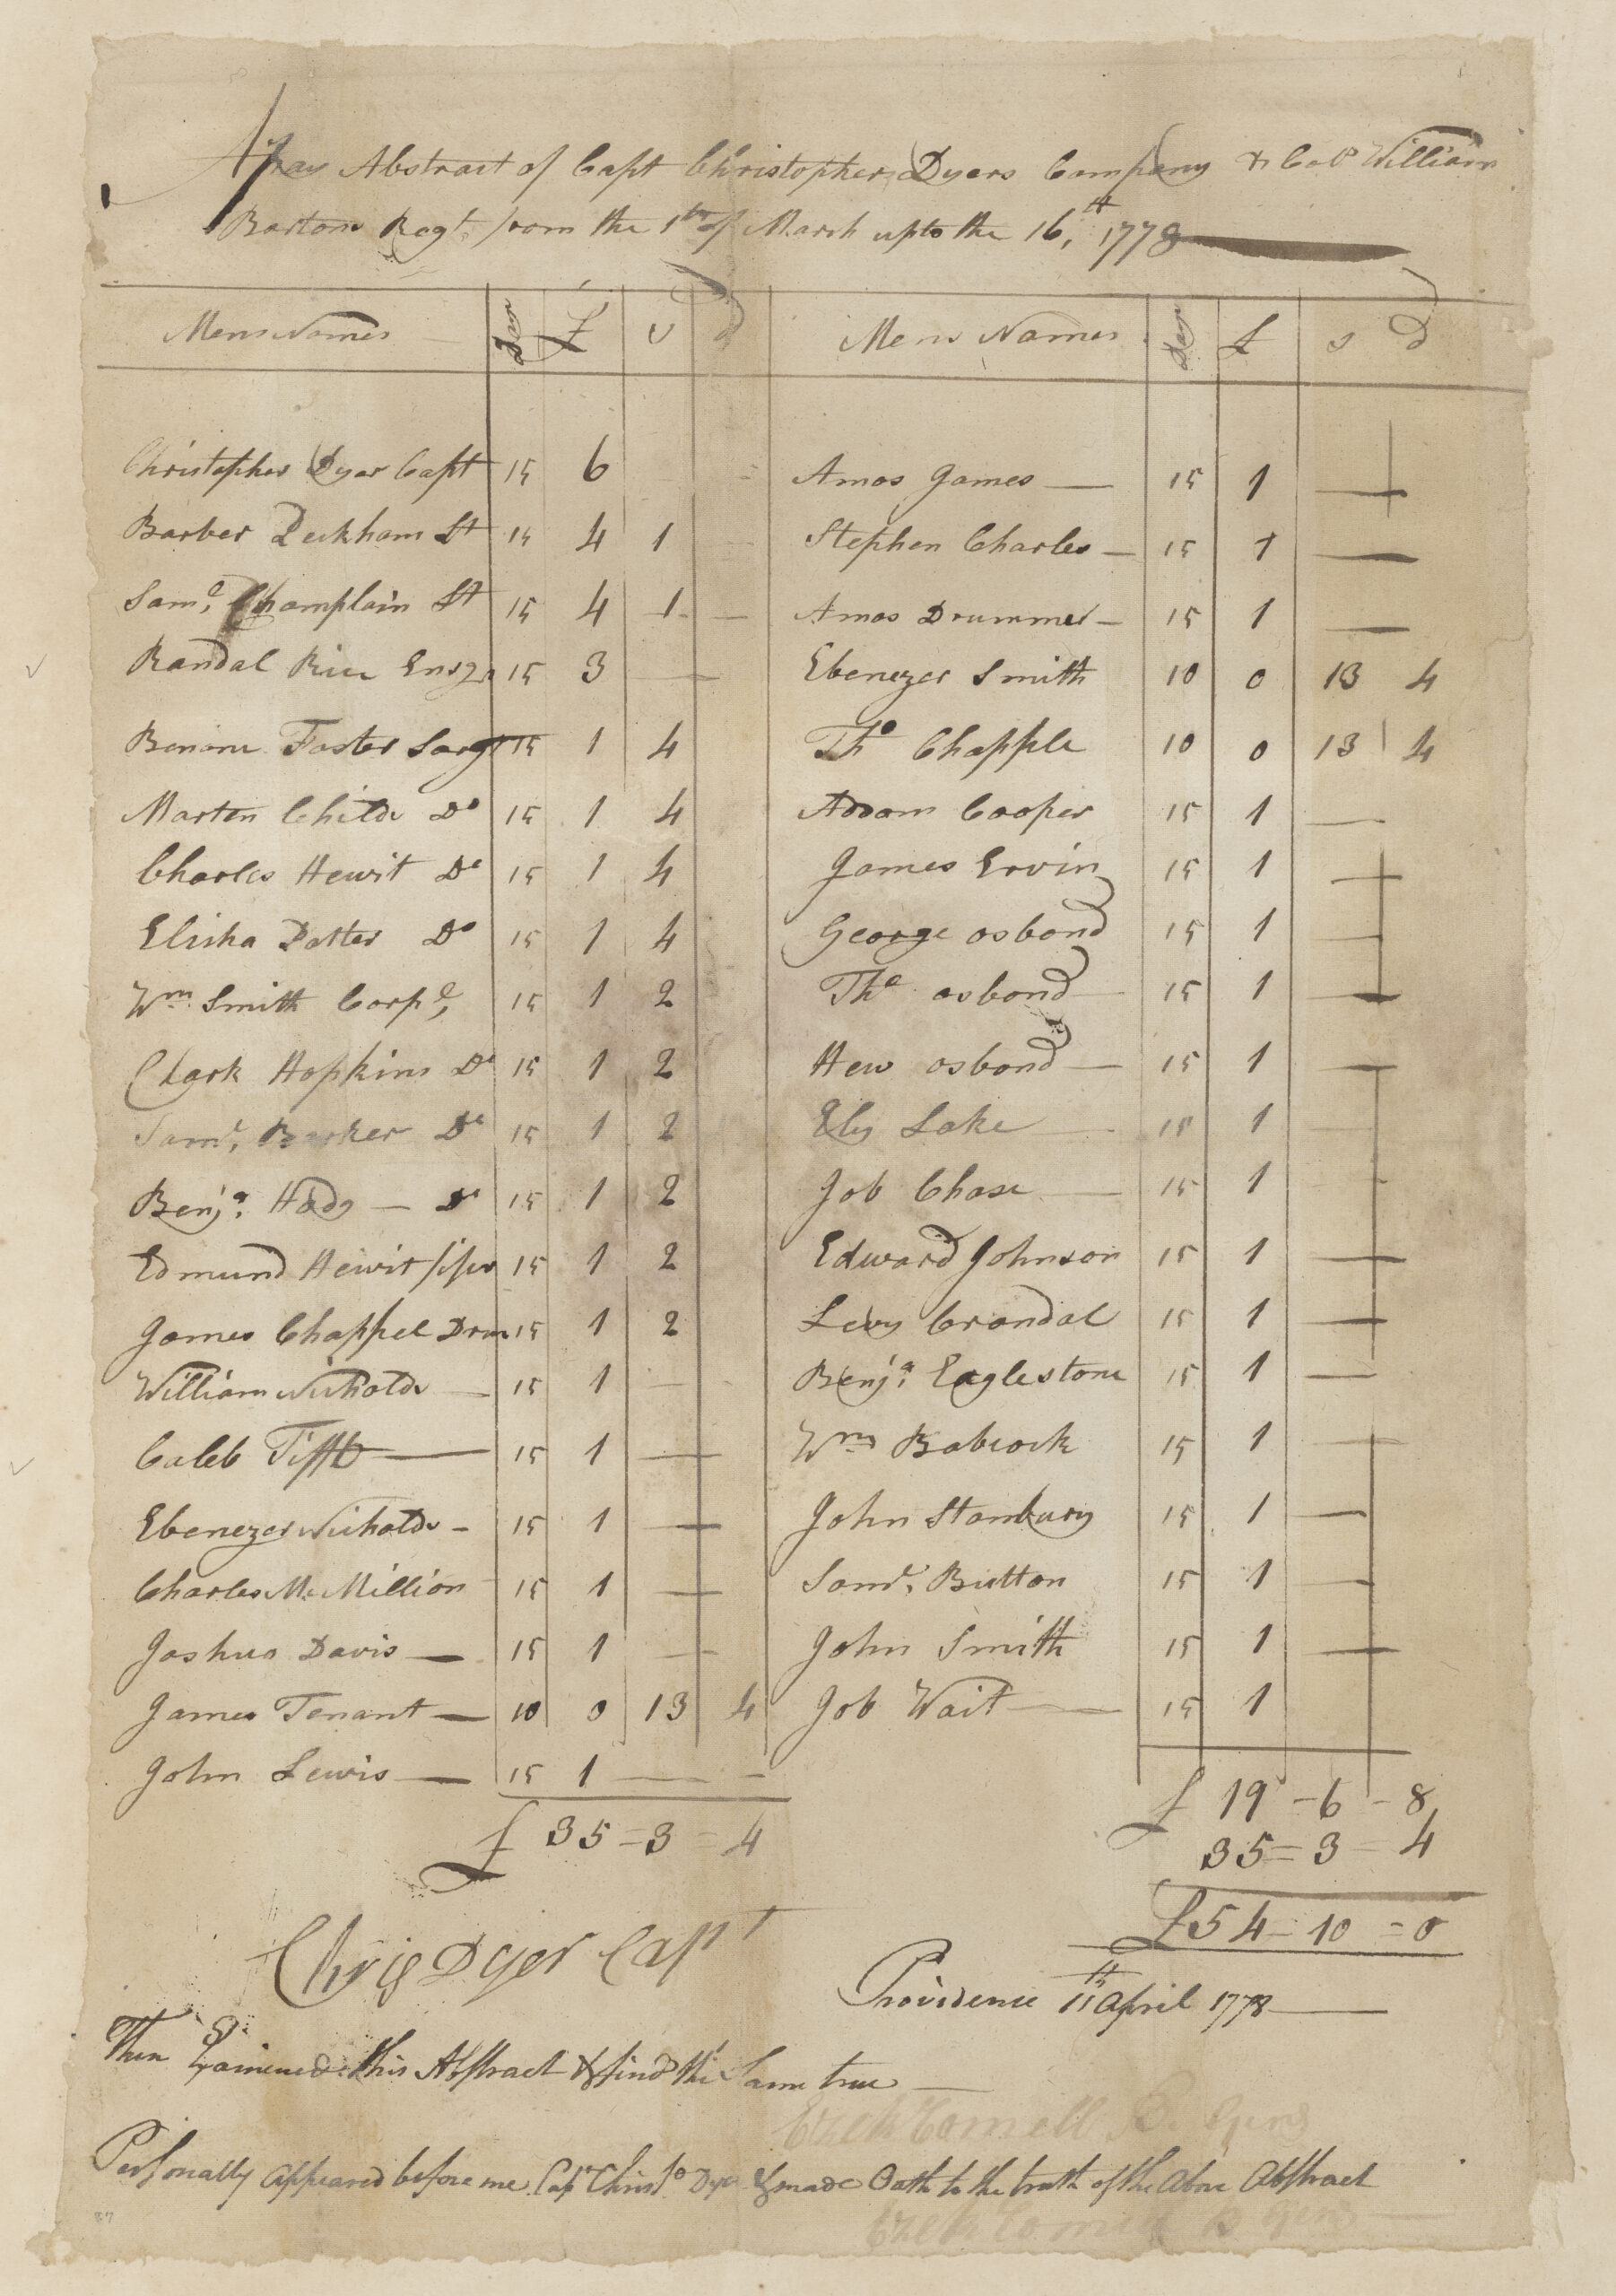 A pay Abstract of Capt Christopher Dyers Company & Colo William
Bartons Regt from the 1st of March upto the 16th, 1778
Mens Names days £ s d
Christopher Dyer Capt 15 6
Barber Peckham Lt 15 4 1
Saml, Champlain Lt 15 4 1 —
Randal Rice Ensgn 15 3 —
Benone Foster Sargt 15 1 4
Marten Childs Do 15 1 4
Charles Hewit Do 15 1 4
Elisha Potter Do 15 1 4
Wm Smith Corpl, 15 1 2
Clark Hopkins Do 15 1 2
Saml, Barker Do 15 1 2
Benja. Hady — Do 15 1 2
Edmund Hewit fifer 15 1 2
James Chappel Drum 15 1 2
William Nicholds — 15 1 —
Caleb Tifft — 15 1 —
Ebenezer Nicholds - 15 1 —
Charles Mc Million 15 1 —
Joshua Davis — 15 1 —
James Tenant — 10 0 13 4
John Lewis — 15 1 — –
£ 35 = 3 = 4
Mens Names days £ s d
Amos James — 15 1 —
Stephen Charles — 15 1 —
Amos Drummer — 15 1 —
Ebenezer Smith 10 0 13 4
Tho Chapple 10 0 13 4
Addam Cooper 15 1 —
James Ervin 15 1 —
George osbond 15 1 —
Tho osbond — 15 1 —
Hew osbond — 15 1 —
Ely Lake — 15 1 —
Job Chase — 15 1 -
Edward Johnson 15 1 —
Levy Crandal 15 1 —
Benja. Eaglestone 15 1 —
Wm Babcock 15 1 —
John Stanbury 15 1 —
Saml, Button 15 1 —
John Smith 15 1 —
Job Wait — 15 1
£ 19 - 6 - 8
35 = 3 - 4
£54 - 10 = 0
Chris Dyer Capt
Providence 11th April 1778 —
Then Examened this Abstract & find the Same true —
Ezek Cornell B. Gen
Personally Appeared before me Capt Christo Dyer & made Oath to the truth of the above Abstract
Ezek Cornell B Gen
87